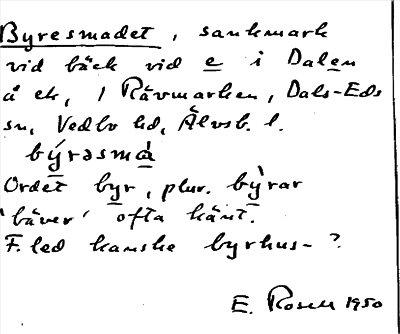 Byresmadet, sankmark
vid bäck vid e i Dalen
å ek, i Rävmarken, Dals-Eds
sn, Vedbo hd, Älvsb. l.
býrəsmà
Ordet byr, plur. bỳrar
'bäver' ofta känt.
F. led kanske byrhus- ?
E. Rosell 1950